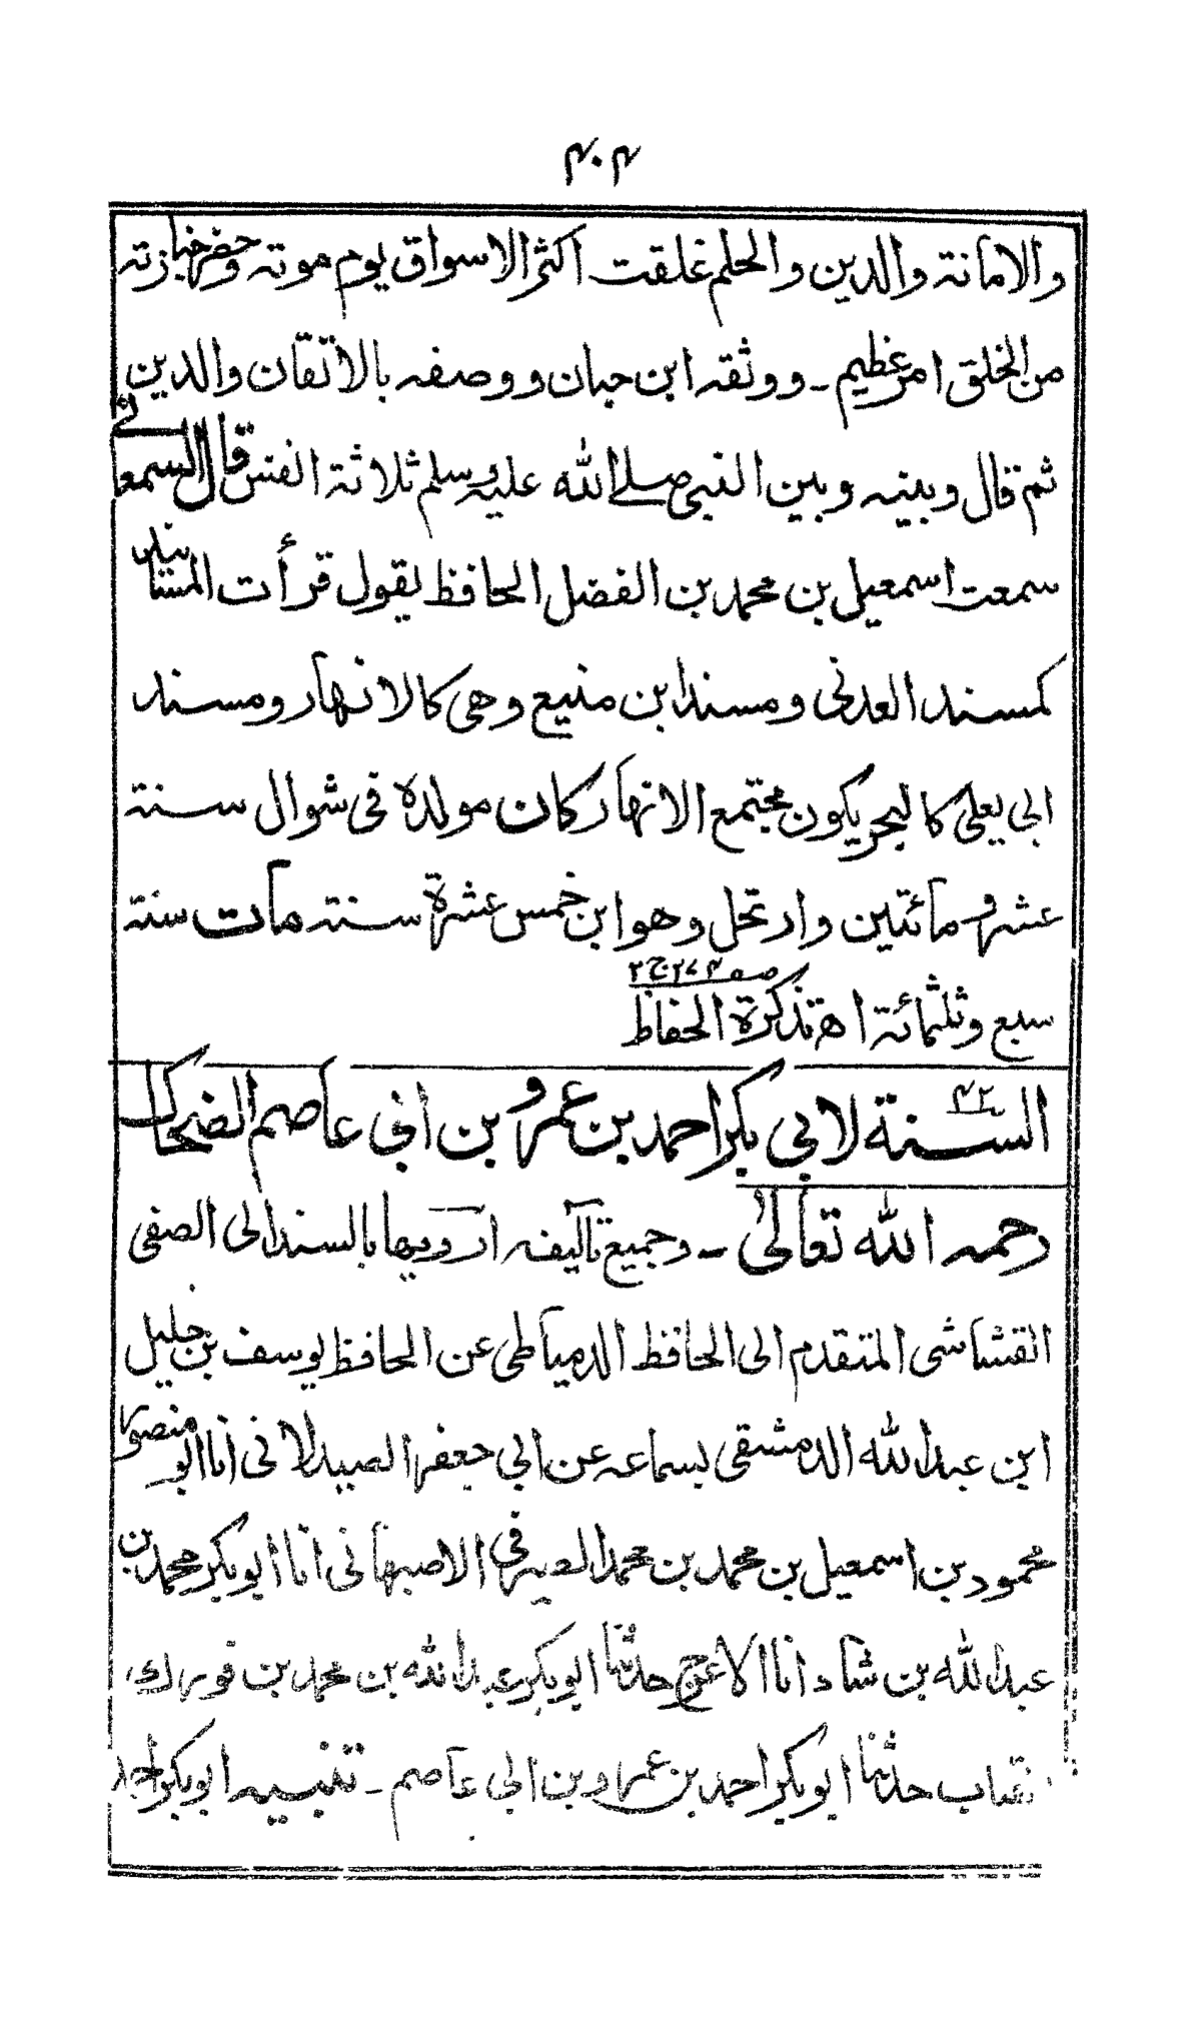 ۴۰۴
والامانة والدين والحلم غلقت اكثر الاسواق يوم موته وحضر جنازته
من الخلق امر عظيم ـ ووثقه ابن حبان ووصفه بالاتقان والدين
ثم قال وبينه وبين النبي صلے الله عليه وسلم ثلاثة انفس قال السمعانے
سمعت اسمعيل بن محمد بن الفضل الحافظ يقول قرأت المسانيد
كمسند العدنى ومسند ابن منيع وهى كالانهار ومسند
ابي يعلى كالبحر يكون مجتمع الانهار كان مولده فى شوال سنة
عشر ومائتين وارتحل وهو ابن خمس عشرة سنة مات سنة
سبع وثلثمائة اھ تذكرة الحفاظ صـ ۲۷۴ ج ۲
۴۲ السنة لابي بكر احمد بن عمرو بن ابي عاصم الضحاك
رحمه الله تعالىٰ ـ وجميع تآليفه ارويها بالسند الى الصفى
القشاشى المتقدم الى الحافظ الدمياطى عن الحافظ يوسف بن خليل
ابن عبد الله الدمشقى بسماعه عن ابي جعفر الصيدلانى انا ابو منصور
محمود بن اسمعيل بن محمد بن محمد الصيرفى الاصبهانى انا ابو بكر محمد بن
عبد الله بن شاذان الاعرج حدثنا ابو بكر عبد الله بن محمد بن فورك
قباب حدثنا ابو بكر احمد بن عمرو بن ابى عاصم ـ تنبيه ابو بكر احمد